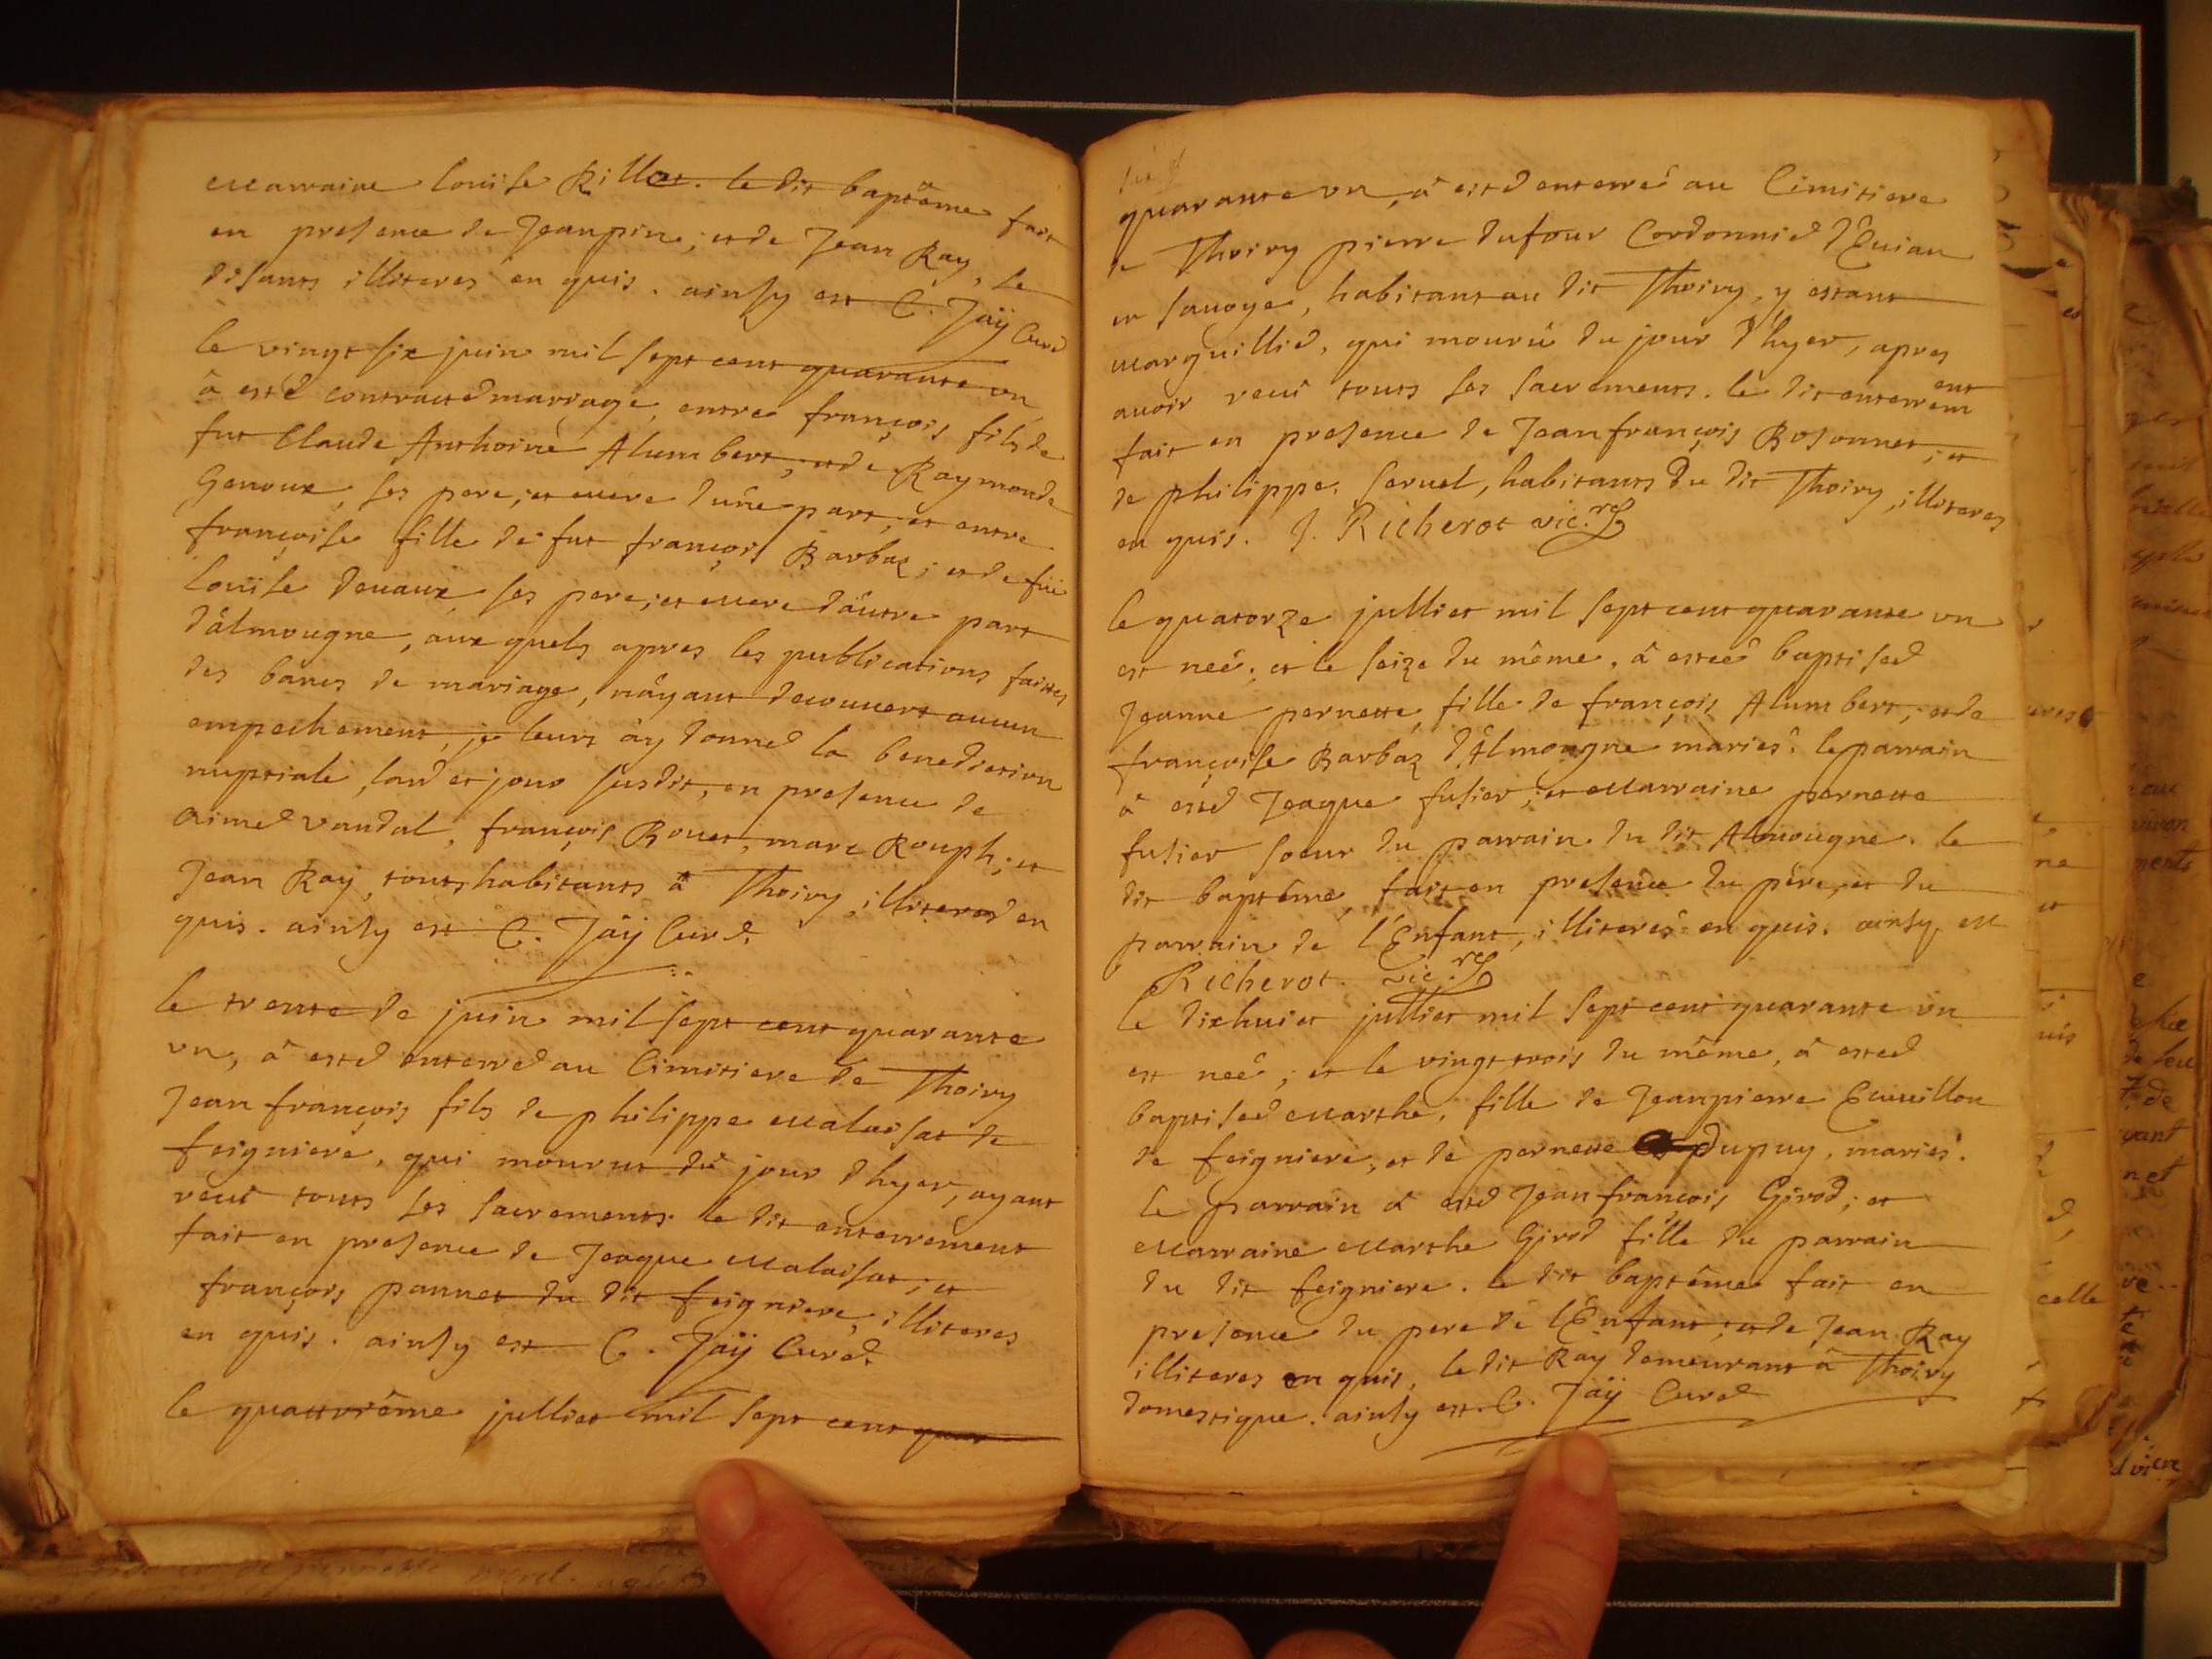 marraine louïse Rillot. le dit baptême fait
en presence de Jeanpin; et de Jean Ray, se
disants illiteres en quis. ainsy est C. Jaÿ Curé
le vingt six juin mil sept cent quarante un
â esté contracté marriage entre françois fils de
fut Claude Anthoine Alumbert, et de Raymonde
Genoux, ses pere, et mere d'une part, et entre
françoise fille de fut françois Barbaz; et de fuë
louïse devaux ses pere, et mere d'autre part
d'almougne, aux quels apres les publications faittes
des bancs de mariage, n'ayant decouvert aucun
empechement, je leurs ây donné la benediction
nuptiale, l'an et jour susdit, en presence de
Aimé vandal, françois Bouet, marc Rouph; et
Jean Raÿ, touts habitants â Thoiry, illiteres en
quis. ainsy est C. Jaÿ Curé.
le trente de juin mil sept cent quarante
un, â esté enterré au Cimitiere de Thoiry
Jean françois fils de philippe malaisat de
feigniere, qui mourut du jour d'hyer, ayant
receu touts ses sacrements. le dit enterrement
fait en presence de Jeaque malaisat; et
françois pannet du dit feigniere, illiteres
en quis. ainsy est C. Jaÿ Curé.
le quattrième julliet mil sept cent quar
quarante un, â esté enterré au Cimitiere
de Thoiry pierre dufour Cordonnié d'Euian
en sauoye, habitant au dit Thoiry, y estant
marguillié, qui mourû du jour d'hyer, apres
auoir receu touts ses sacrements. le dit enterrement
fait en presence de Jean françois Bosonnet; et
de philippe seruel, habitants du dit Thoiry, illiteres
en quis. J. Richerot vic.re
le quatorze julliet mil sept cent quarante un
est neé, et le seize du même, â esteé baptiseé
Jeanne pernette fille de françois Alumbert; et de
françoise Barbaz d'Almougne mariés. le parrain
â esté Jeaque fusier; et marraine pernette
fusier soeur du parrain du dit Almougne. le
dit baptême fait en presence du père, et du
parrain de l'Enfant, illiteres en quis. ainsy est
Richerot. vic.re
le dixhuict julliet mil sept cent quarante un
est neé; et le vingt trois du même, â esteé
baptiseé marthe, fille de Jeanpierre Ecuuillon
de feigniere, et de pernette Dupuy, mariés.
le parrain â esté Jean françois Girod; et
marraine marthe Girod fille du parrain
du dit feigniere. le dit baptême fait en
presence du pere de l'Enfant; et de Jean Ray
illiteres en quis, le dit Ray demeurant â Thoiry
domestique. ainsy est. C. Jaÿ Curé